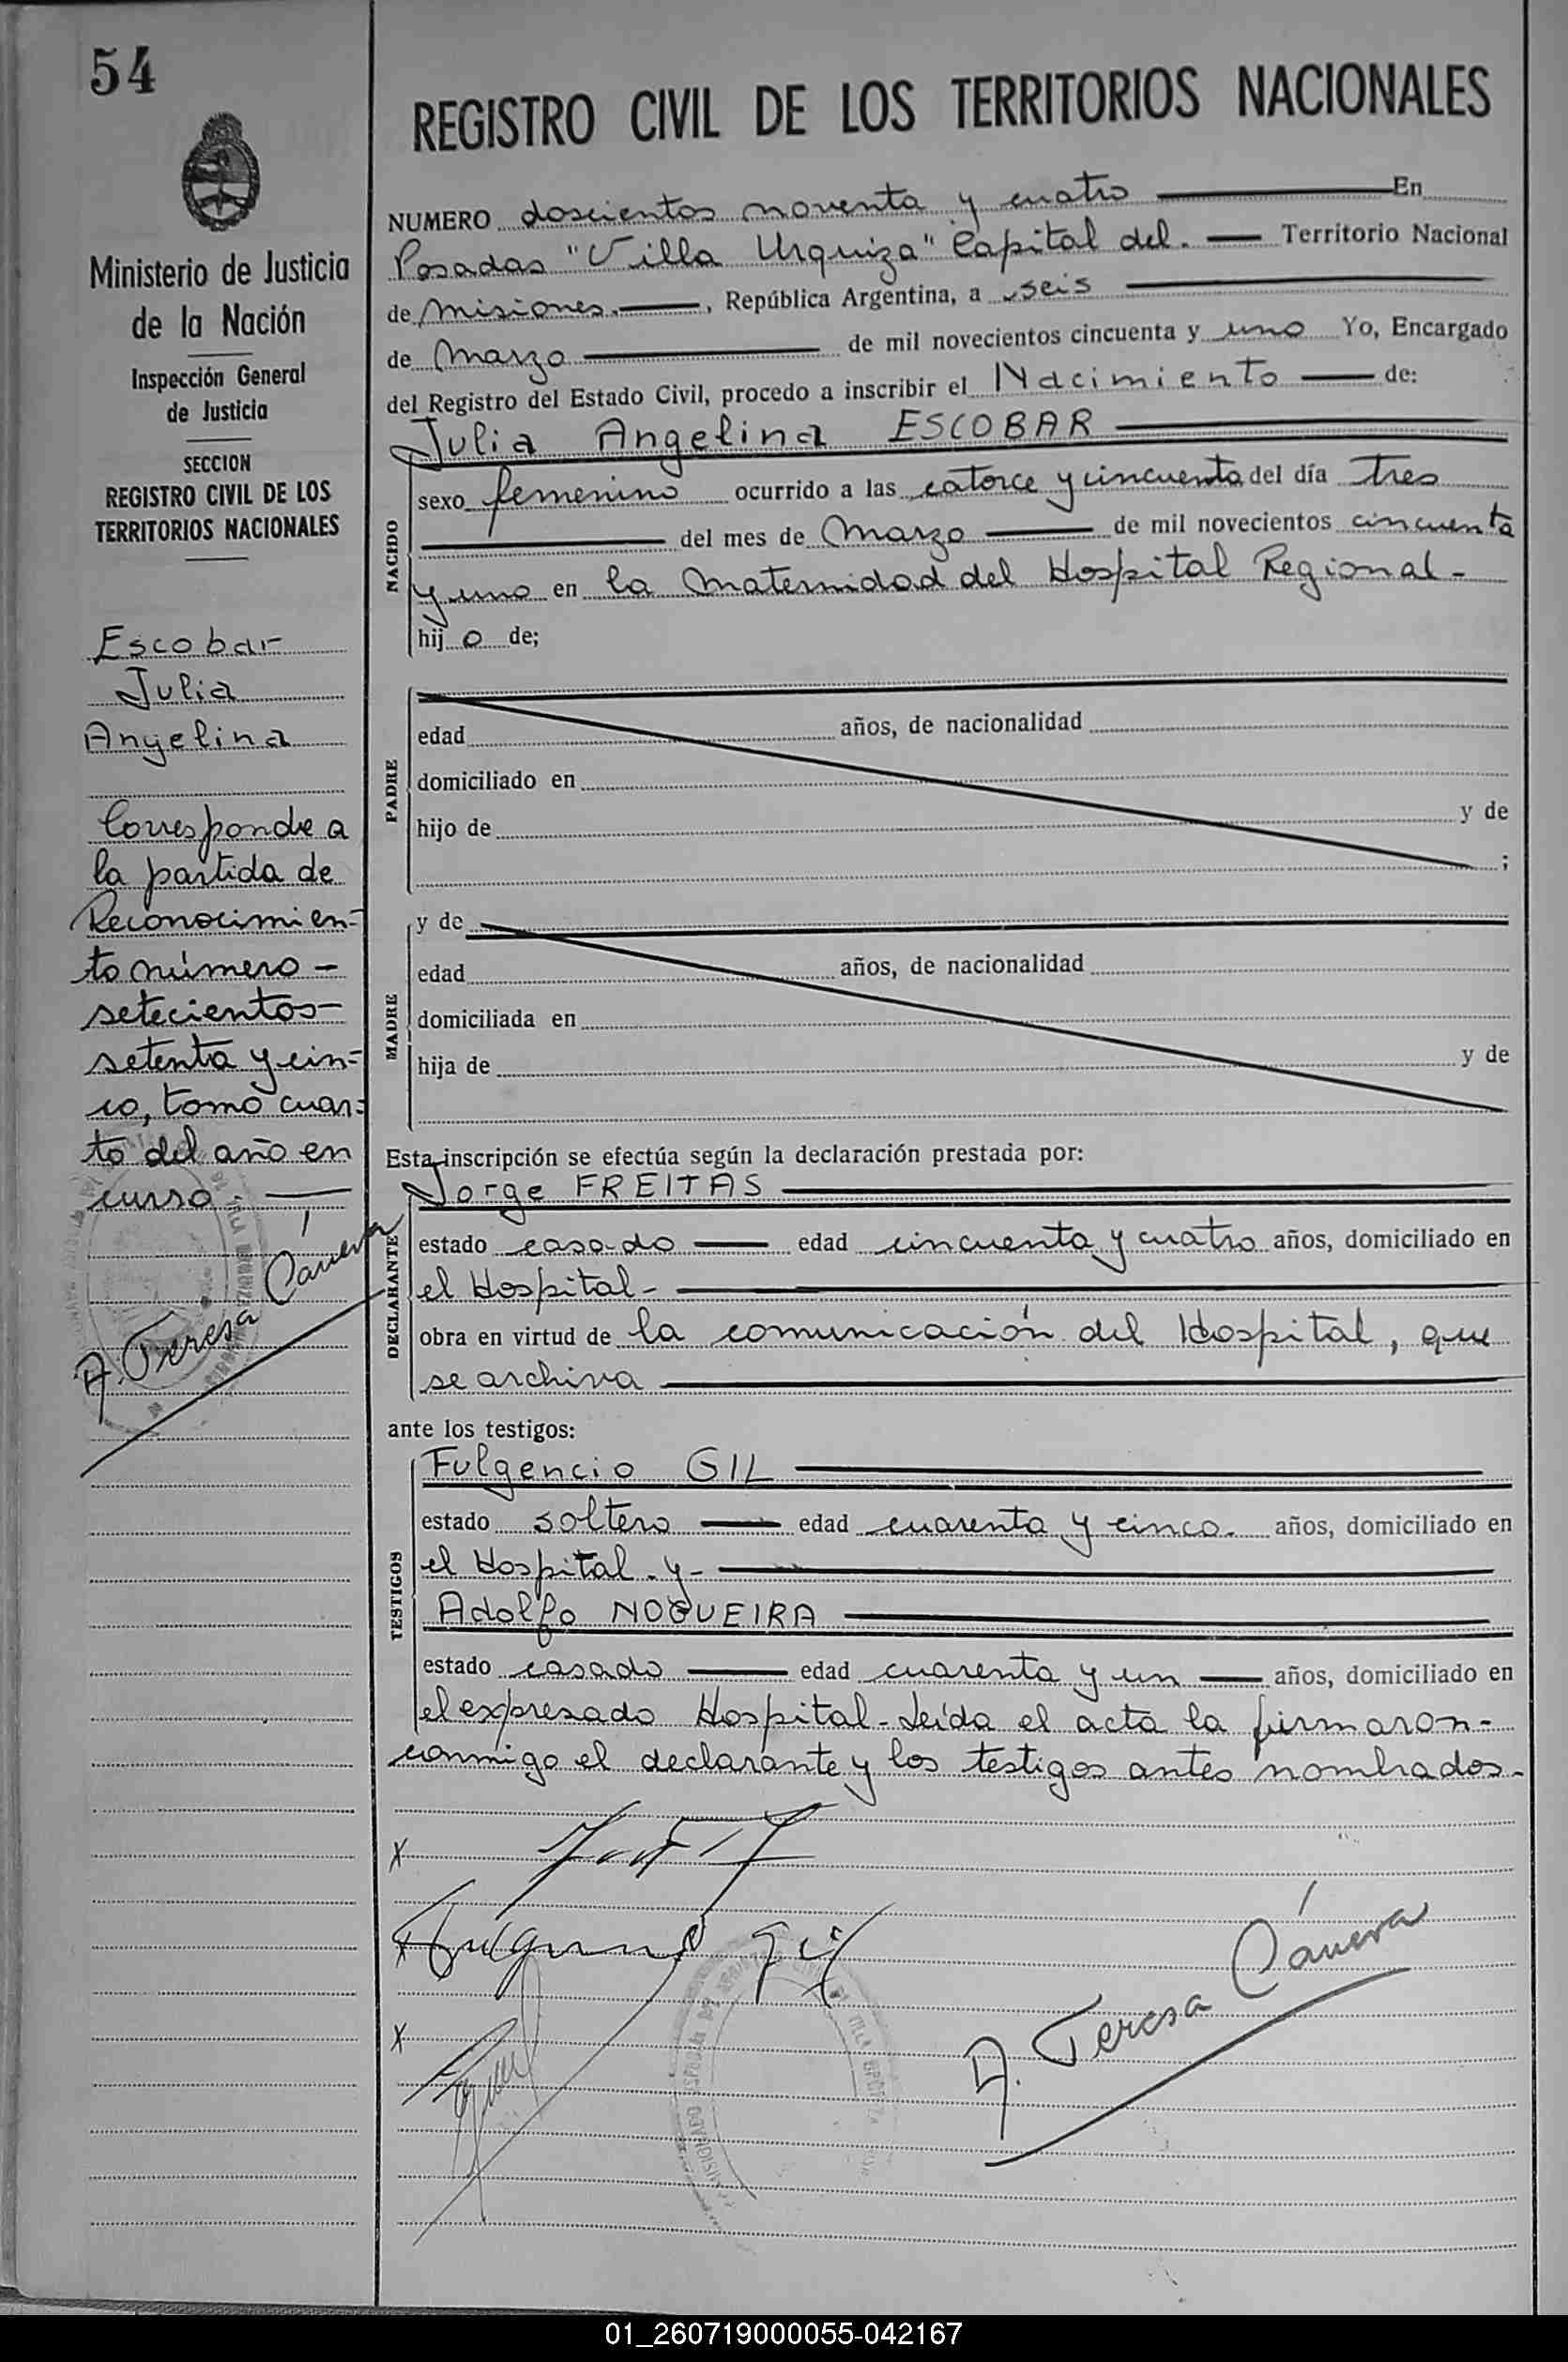 54
Ministerio de Justicia
de la Nación
Inspección General
de Justicia
SECCION
REGISTRO CIVIL DE LOS
TERRITORIOS NACIONALES
Escobar
Julia
Angelina
Corresponde a
la partida de
Reconocimien-
to número -
setecientos-
setenta y cin-
co, tomo cuar-
to del año en
curso.
A. Teresa Cánera
REGISTRO CIVIL DE LOS TERRITORIOS NACIONALES
NUMERO doscientos noventa y cuatro En
Posadas "Villa Urquiza" Capital del. Territorio Nacional
de Misiones. , República Argentina, a seis
de Marzo de mil novecientos cincuenta y uno Yo, Encargado
del Registro del Estado Civil, procedo a inscribir el Nacimiento de:
Julia Angelina ESCOBAR
NACIDO
sexo femenino ocurrido a las catorce y cincuenta del día tres
del mes de Marzo de mil novecientos cincuenta
y uno en la Maternidad del Hospital Regional -
hij o de;
PADRE
edad años, de nacionalidad
domiciliado en
hijo de y de
;
MADRE
y de
edad años, de nacionalidad
domiciliada en
hija de y de
Esta inscripción se efectúa según la declaración prestada por:
DECLARANTE
Jorge FREITAS
estado casado edad cincuenta y cuatro años, domiciliado en
el Hospital -
obra en virtud de la comunicación del Hospital, que
se archiva
ante los testigos:
TESTIGOS
Fulgencio GIL
estado soltero edad cuarenta y cinco. años, domiciliado en
el Hospital. y -
Adolfo NOGUEIRA
estado casado edad cuarenta y un años, domiciliado en
el expresado Hospital - Leída el acta la firmaron -
conmigo el declarante y los testigos antes nombrados. -
x
x Fulgencio Gil
x
A. Teresa Cánera
01_260719000055-042167